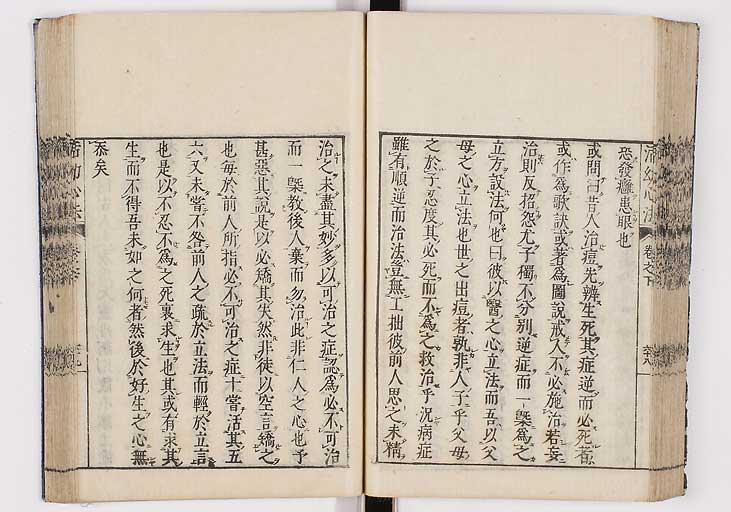 恐發癰患眼也
或問曰昔人治痘先辨生死其症逆而必死者
或作為歌訣或著為圖說戒人不必施治若妄
治則反招怨尤子獨不分別逆症而一槩為之
立方設法何也曰彼以醫之心立法而吾以父
母之心立法也世之出痘者孰非人子乎父母
之於子忍度其必死而不為之救治乎況病症
雖有順逆而治法豈無工拙彼前人思之未精
治之未盡其妙多以可治之症認為必不可治
而一槩教後人棄而勿治此非仁人之心也予
甚惡其說是以必矯其失然非徒以空言矯之
也每於前人所指必不可治之症十嘗活其五
六又未嘗不咎前人之疏於立法而輕於立言
也是以不忍不為之死裏求生也其或有求其
生而不得吾末如之何者然後於好生之心無
忝矣
活幼心法
卷之下